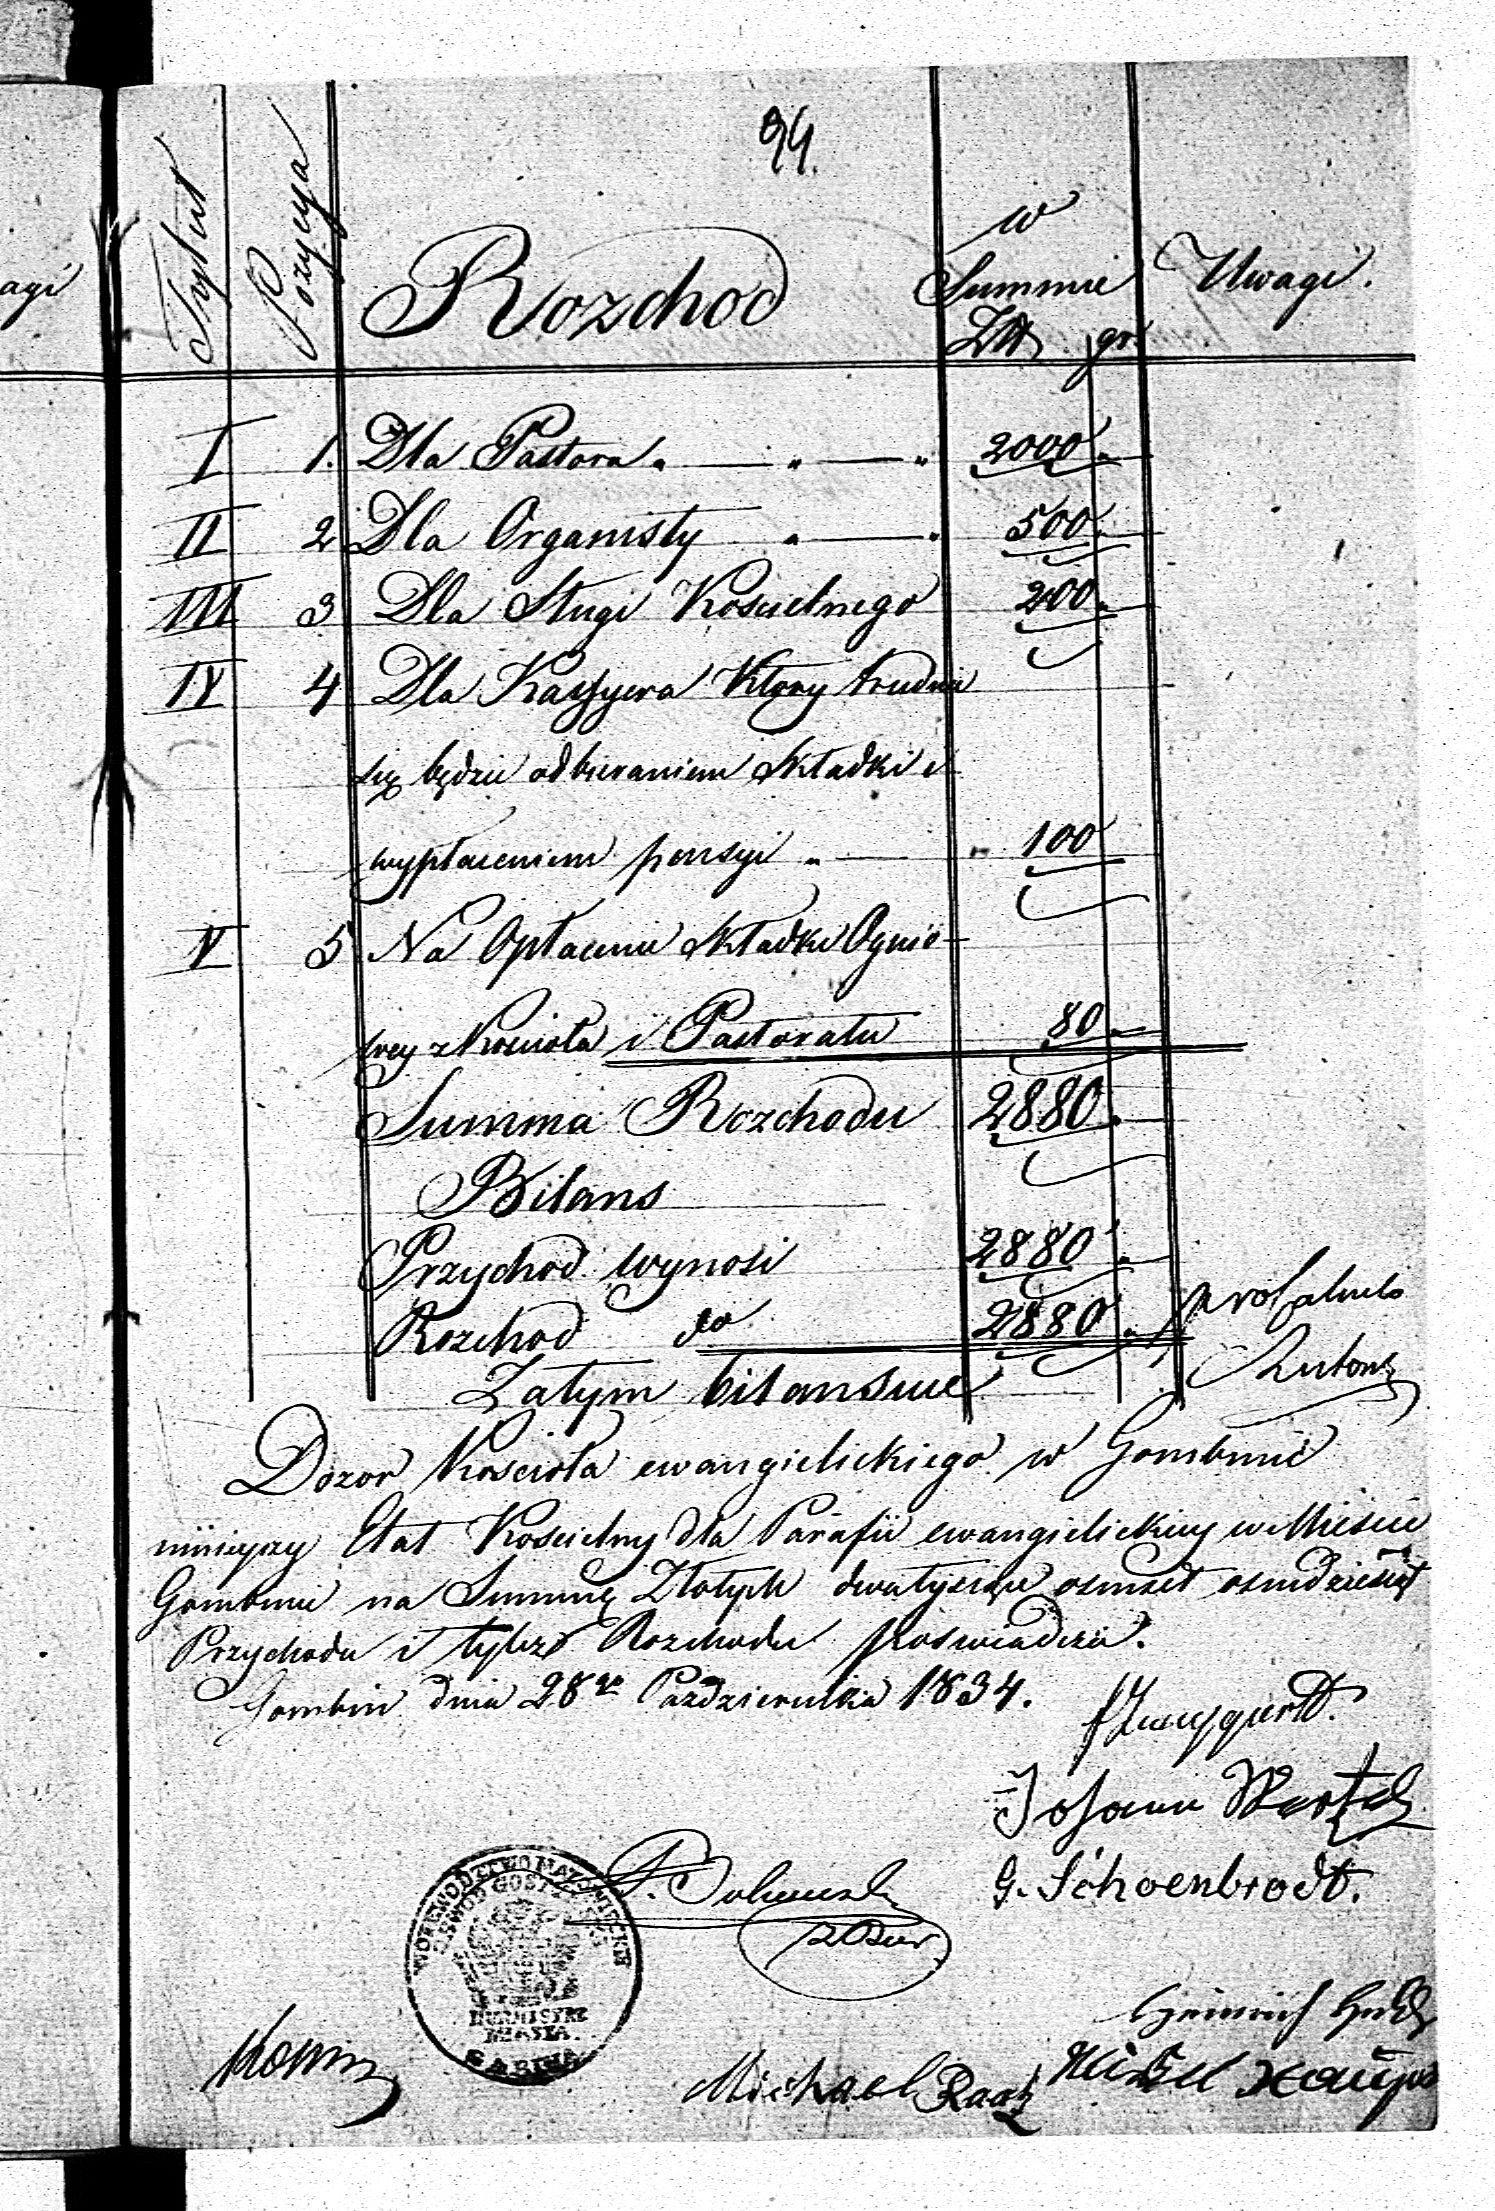 94.
agi
Tytuł Pozycya Rozchod w Summie Złt gr. Uwagi.
I 1. Dla Pastora „ — „ — „ 2000 „
II 2 Dla Organisty „ — „ 500 „
III 3 Dla Sługi Koscielnego 200 „
IV 4 Dla Kassyera Ktory trudnić
się będzie odbieraniem Składki i
wypłaceniem pensyi „ — „ 100
V 5 Na Opłacenie Składki Ognio-
wey z Kosciola i Pastoratu 80 „
Summa Rozchodu 2880 „
Bilans
Przychod wynosi 2880 „
Rozchod do 2880 „
Zatym bilansuie
Dozor Kosciola ewangielickiego w Gombinie
ninieyszy Etat Koscielny dla Parafii ewangielickiey w Miescie
Gombinie na Summę Złotych dwatysiące osmset osmdziesiąt
Przychodu i tyleż Rozchodu poswiadcza.
Gombin dnia 28go Pazdziernika 1834.
Johann
G. Schoenbrodt.
WOIEWODZTWO MAZOWIECKIE
OBWOD GOST
BURMISTRZ
MIASTA
GABINA
Heinrich
Michael Raatz